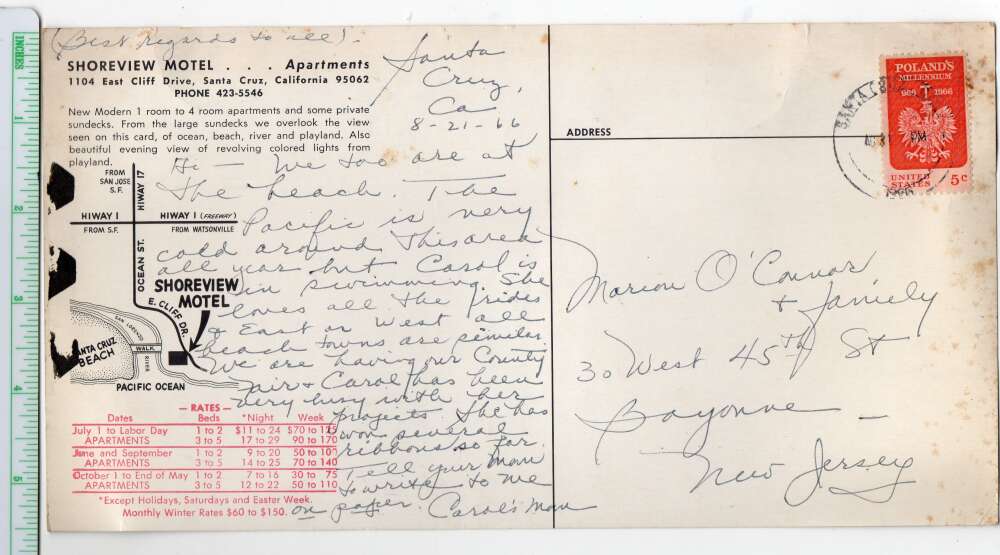 (Best regards to all).
SHOREVIEW MOTEL . . . Apartments
1104 East Cliff Drive, Santa Cruz, California 95062
PHONE 423-5546
New Modern 1 room to 4 room apartments and some private
sundecks. From the large sundecks we overlook the view
seen on this card, of ocean, beach, river and playland. Also
beautiful evening view of revolving colored lights from
playland.
Santa
Cruz,
Ca
8-21-66
Hi - We too are at
the beach. The
Pacific is very
cold around this area
all year but Carol is
in swimming. She
loves all the rides
& East or West all
beach towns are similar.
We are having our County
Fair & Carol has been
very busy with her
projects. She has
won several
ribbons so far.
Tell your Mom
to write to me
on paper. Carol's Mom
FROM
SAN JOSE
S.F.
HIWAY 17
HIWAY 1
HIWAY 1 (FREEWAY)
FROM S.F.
FROM WATSONVILLE
OCEAN ST.
SHOREVIEW
MOTEL
E. CLIFF DR.
SAN LORENZO
RIVER
WALK
SANTA CRUZ
BEACH
PACIFIC OCEAN
— RATES —
Dates Beds *Night Week
July 1 to Labor Day 1 to 2 $11 to 24 $70 to 125
APARTMENTS 3 to 5 17 to 29 90 to 170
June and September 1 to 2 9 to 20 50 to 10
APARTMENTS 3 to 5 14 to 25 70 to 140
October 1 to End of May 1 to 2 7 to 16 30 to 75
APARTMENTS 3 to 5 12 to 22 50 to 110
*Except Holidays, Saturdays and Easter Week.
Monthly Winter Rates $60 to $150.
ADDRESS
POLAND'S
MILLENNIUM
966 1966
UNITED
STATES 5c
SANTA CRUZ
PM
1966
Marion O'Connor
& family
30 West 45th St
Bayonne -
New Jersey
INCHES
1
2
3
4
5